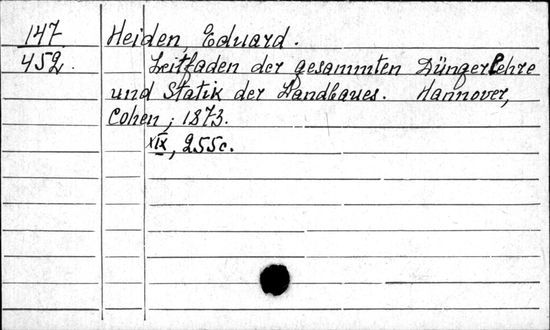 147 Heiden, Eduard.
452. Leitfaden der gesammten Düngerlehre
und Statik der Landbaues. Hannover,
Cohen, 1873.
XIX, 255c.